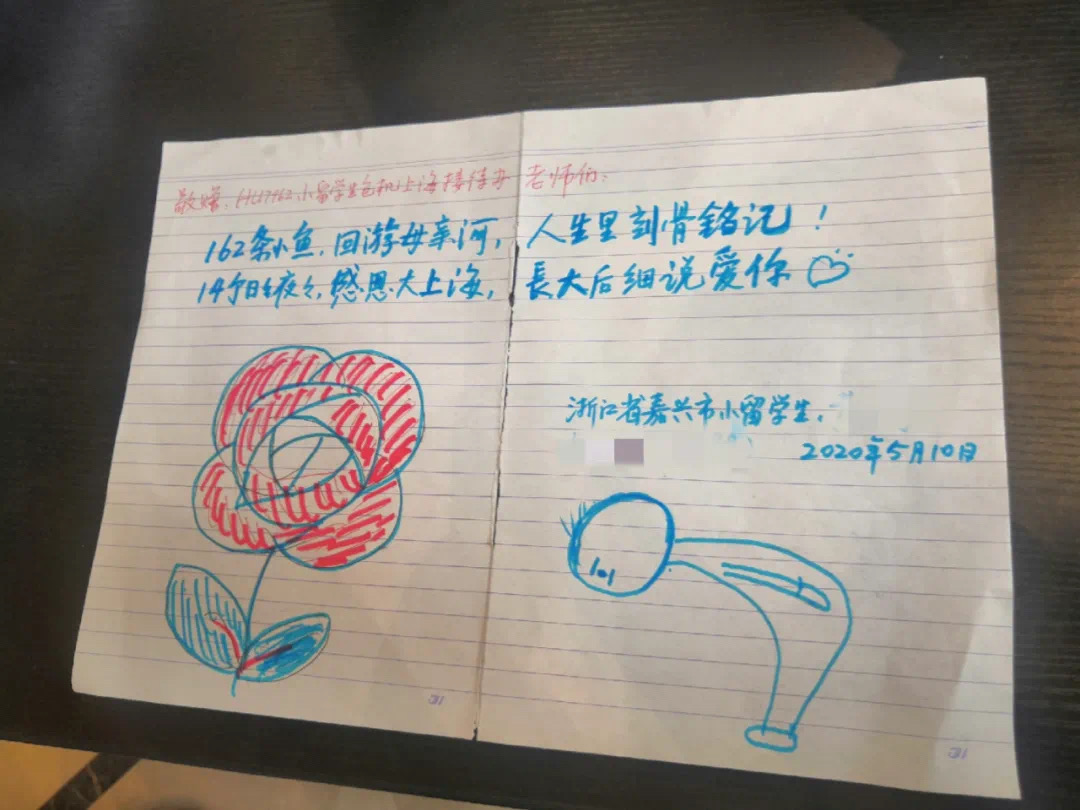 敬赠: 小留学生包机上海接待办 老师们:
162条小鱼,回游母亲河,人生里刻骨铭记!
14个日夜,感恩大上海,長大后细说爱你
浙江省嘉兴市小留学生,
2020年5月10日